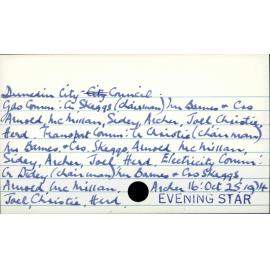 Dunedin City City Council.
Gas Comm: Cr Skeggs (chairman) Mr Barnes & Crs
Arnold, McMillan, Sidey, Archer, Joel, Christie,
Herd. Transport Comm: Cr Christie (chairman)
Mrs Barnes & Crs. Skeggs, Arnold, McMillan,
Sidey, Archer, Joel, Herd. Electricity Comm:
Cr Sidey (chairman) Mrs Barnes & Crs Skeggs,
Arnold, McMillan, Archer 16: Oct 25 1974
Joel, Christie, Herd. EVENING STAR